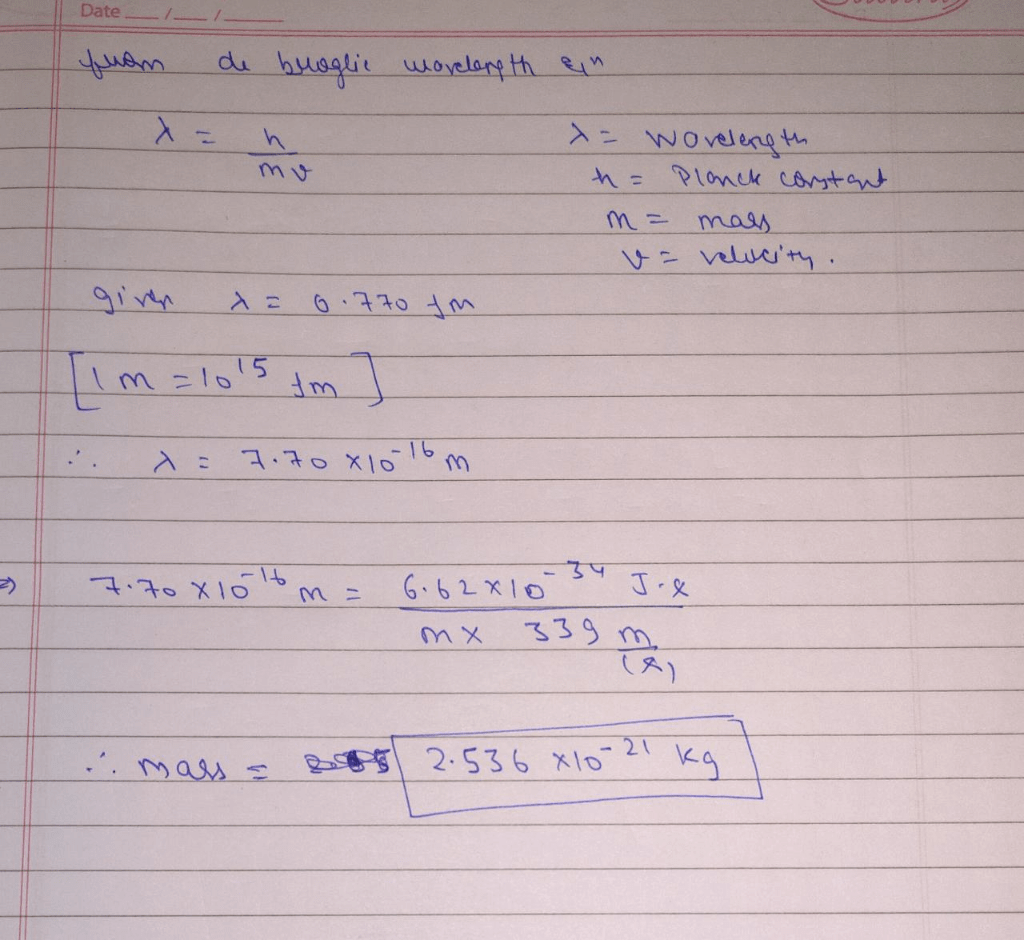 Date __/__/____
from de broglie wavelength eqn
λ = h / mv
λ = wavelength
h = Planck constant
m = mass
v = velocity.
given λ = 0.770 fm
[1 m = 10^15 fm]
∴ λ = 7.70 × 10^-16 m
⇒ 7.70 × 10^-16 m = 6.62 × 10^-34 J·s / m × 339 m/(s)
∴ mass = 2.536 × 10^-21 kg